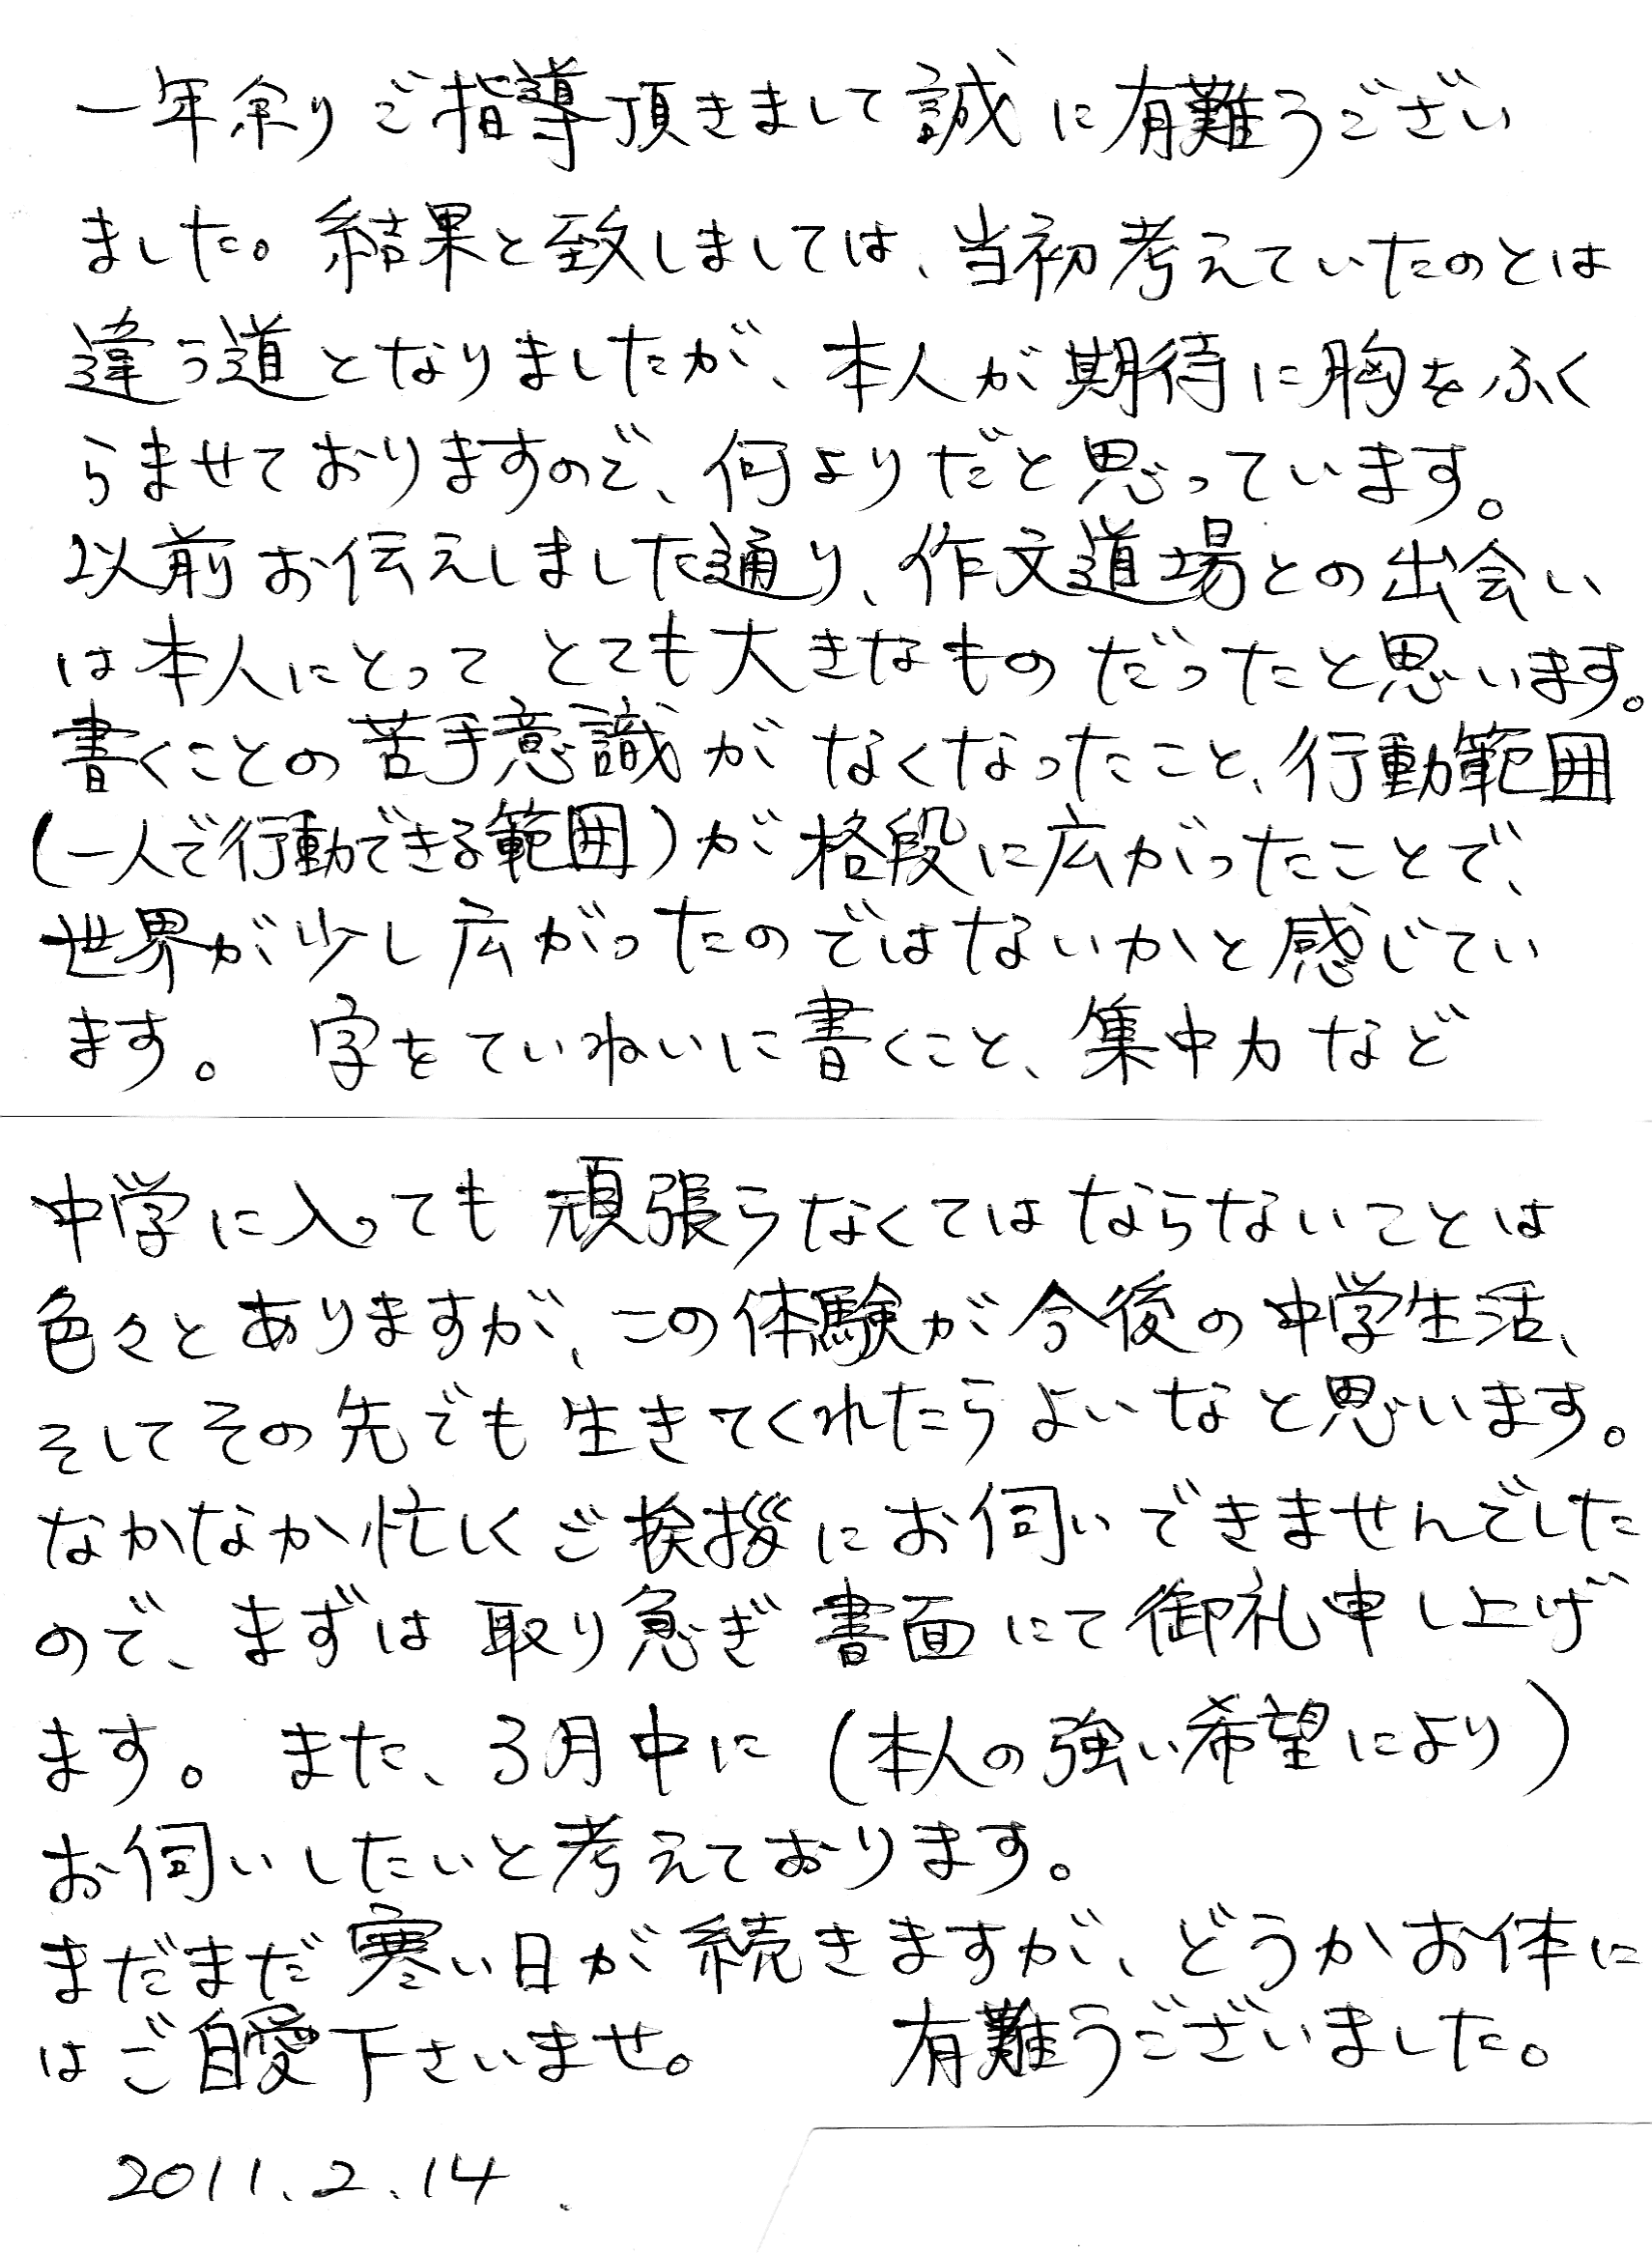 一年余りご指導頂きまして誠に有難うござい
ました。結果と致しましては、当初考えていたのとは
違う道となりましたが、本人が期待に胸をふく
らませておりますので、何よりだと思っています。
以前お伝えしました通り、作文道場との出会い
は本人にとってとても大きなものだったと思います。
書くことの苦手意識がなくなったこと、行動範囲
(一人で行動できる範囲)が格段に広がったことで、
世界が少し広がったのではないかと感じてい
ます。 字をていねいに書くこと、集中力など
中学に入っても頑張らなくてはならないことは
色々とありますが、この体験が今後の中学生活、
そしてその先でも生きてくれたらよいなと思います。
なかなか忙しくご挨拶にお伺いできませんでした
ので、まずは取り急ぎ書面にて御礼申し上げ
ます。 また、3月中に(本人の強い希望により)
お伺いしたいと考えております。
まだまだ寒い日が続きますが、どうかお体に
はご自愛下さいませ。 有難うございました。
2011.2.14.